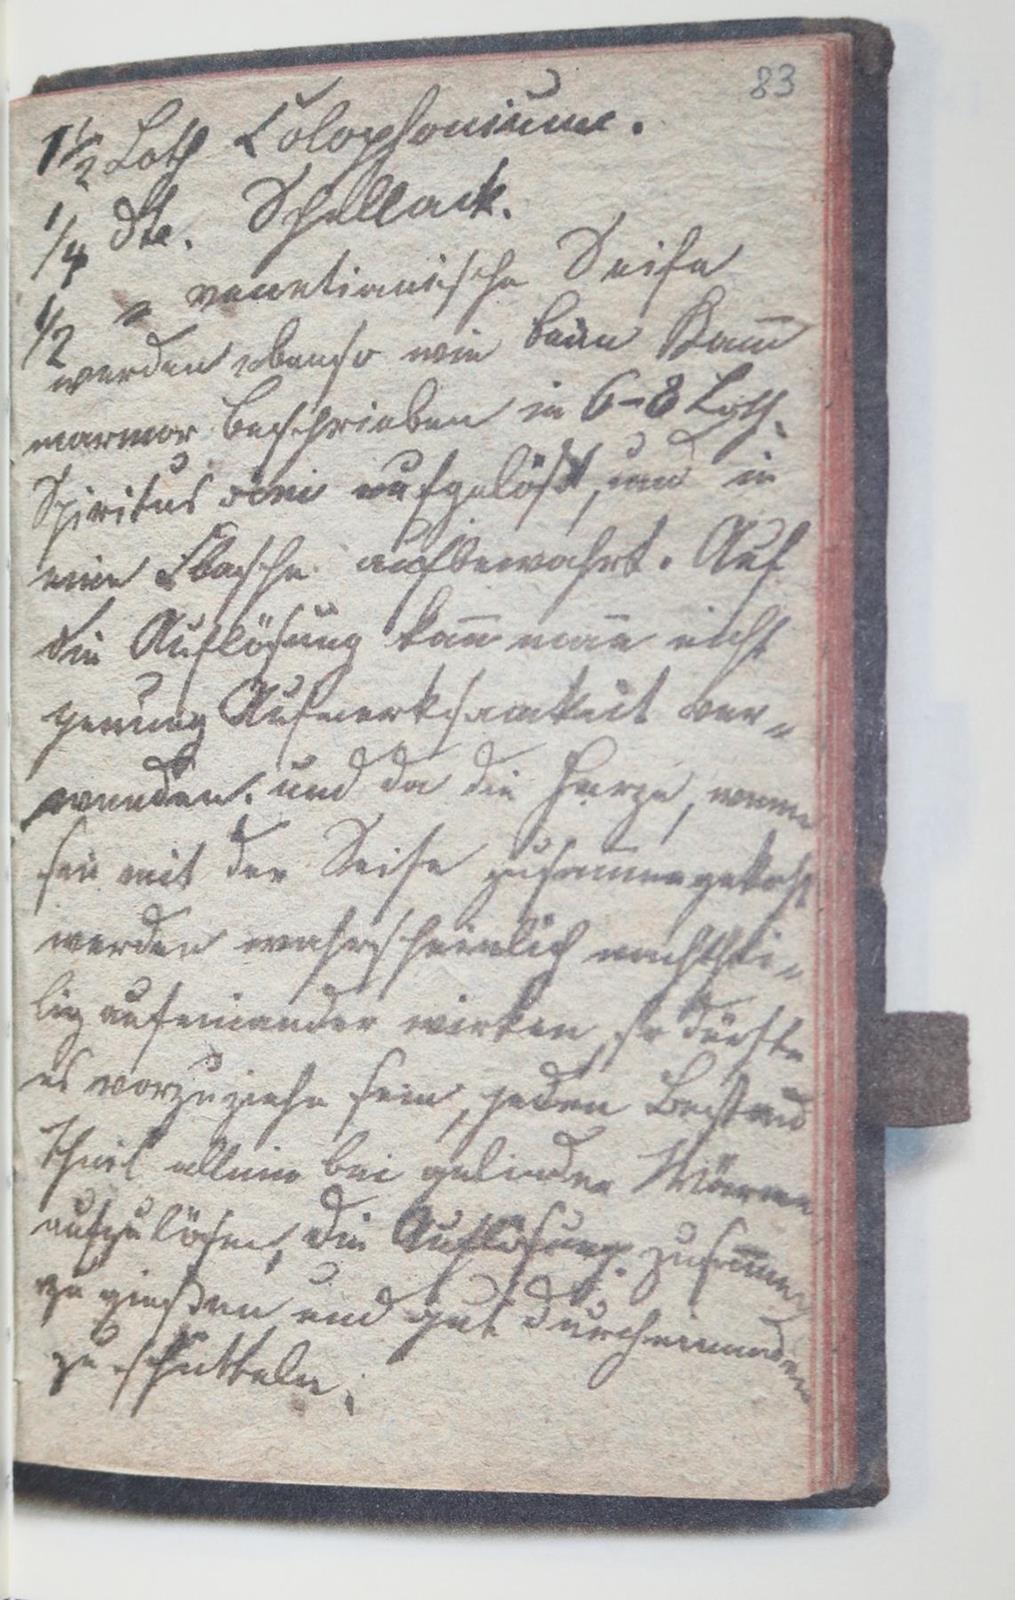 83
1 1/2 Loth Colophonium.
1/4 dto. Schellack.
1/2 " venetianische Seife
werden ebenso wie beim Kam̅
marmor beschrieben in 6–8 Loth
Spiritus vini aufgelößt, und in
eine Flasche aufbewahrt. Auf
die Auflösung kan̅ man nicht
genung Aufmerksamkeit ver-
wenden. und da die Harze, wenn
sie mit der Seife zusammengekocht
werden wahrscheinlich nachthei-
lig aufeinander wirken, so dürfte
es vorzuziehn sein, jeden Bestand
theil alleine bei gelinder Wärme
aufzulösen, die Auflösung zusam̅en
zu gießen und gut durcheinander
zu schütteln.